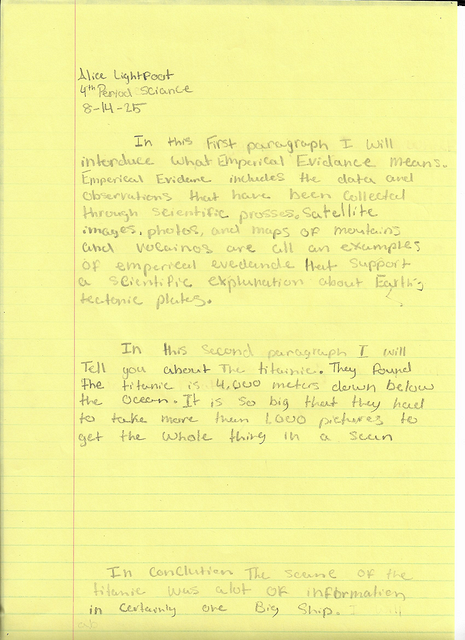 Alice Lightfoot
4th Peryod Sciance
8-14-25
In this First paragraph I will
interduce what Emperical Evidance means.
Emperical Evidanc includes the data and
observations that have been collected
through scientific prosses. Satellite
images, photos, and maps of moutains
and volcainos are all an examples
of emperical evedance that support
a scientific explunation about Earth's
tectonic plates.
In this second paragraph I will
Tell you about The titainic. They Found
The titanic is 4,000 meters down below
the Ocean. It is so big that they had
to take more than 1,000 pictures to
get the whole thing in a scan
In Conclution The scane of the
titanic was alot of information
in certainly one Big Ship. I